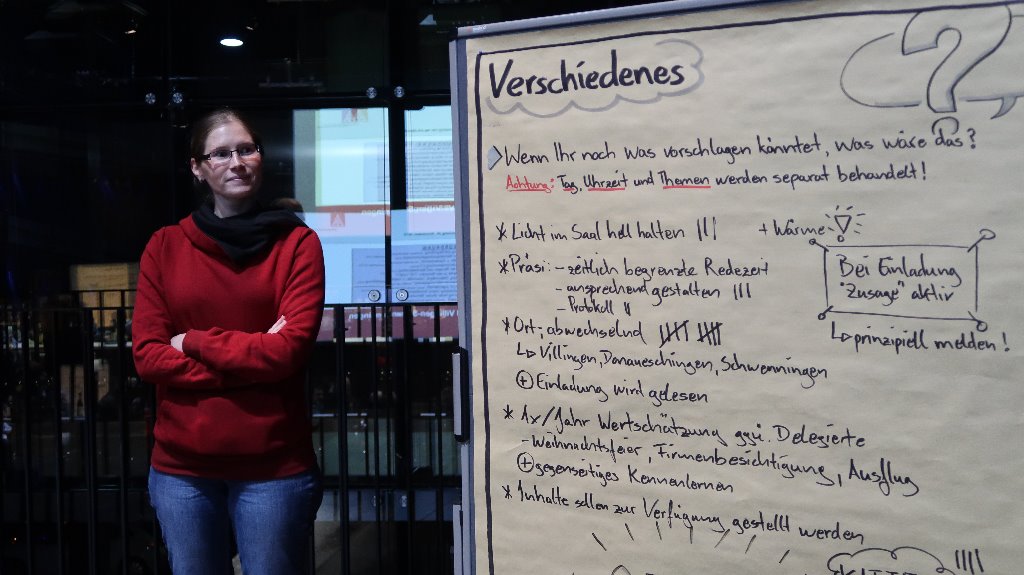 Verschiedenes
?
Wenn Ihr noch was vorschlagen könntet, was wäre das?
Achtung: Tag, Uhrzeit und Themen werden separat behandelt!
* Licht im Saal hell halten |||
+ Wärme
* Präsi: - zeitlich begrenzte Redezeit
- ansprechend gestalten |||
- Protokoll ||
Bei Einladung
"Zusage" aktiv
↳ prinzipiell melden!
* Ort: abwechselnd
↳ Villingen, Donaueschingen, Schwenningen
⊕ Einladung wird gelesen
* 1x/Jahr Wertschätzung ggü. Delegierte
- Weihnachtsfeier, Firmenbesichtigung, Ausflug
⊕ gegenseitiges Kennenlernen
* Inhalte sollen zur Verfügung gestellt werden
||||